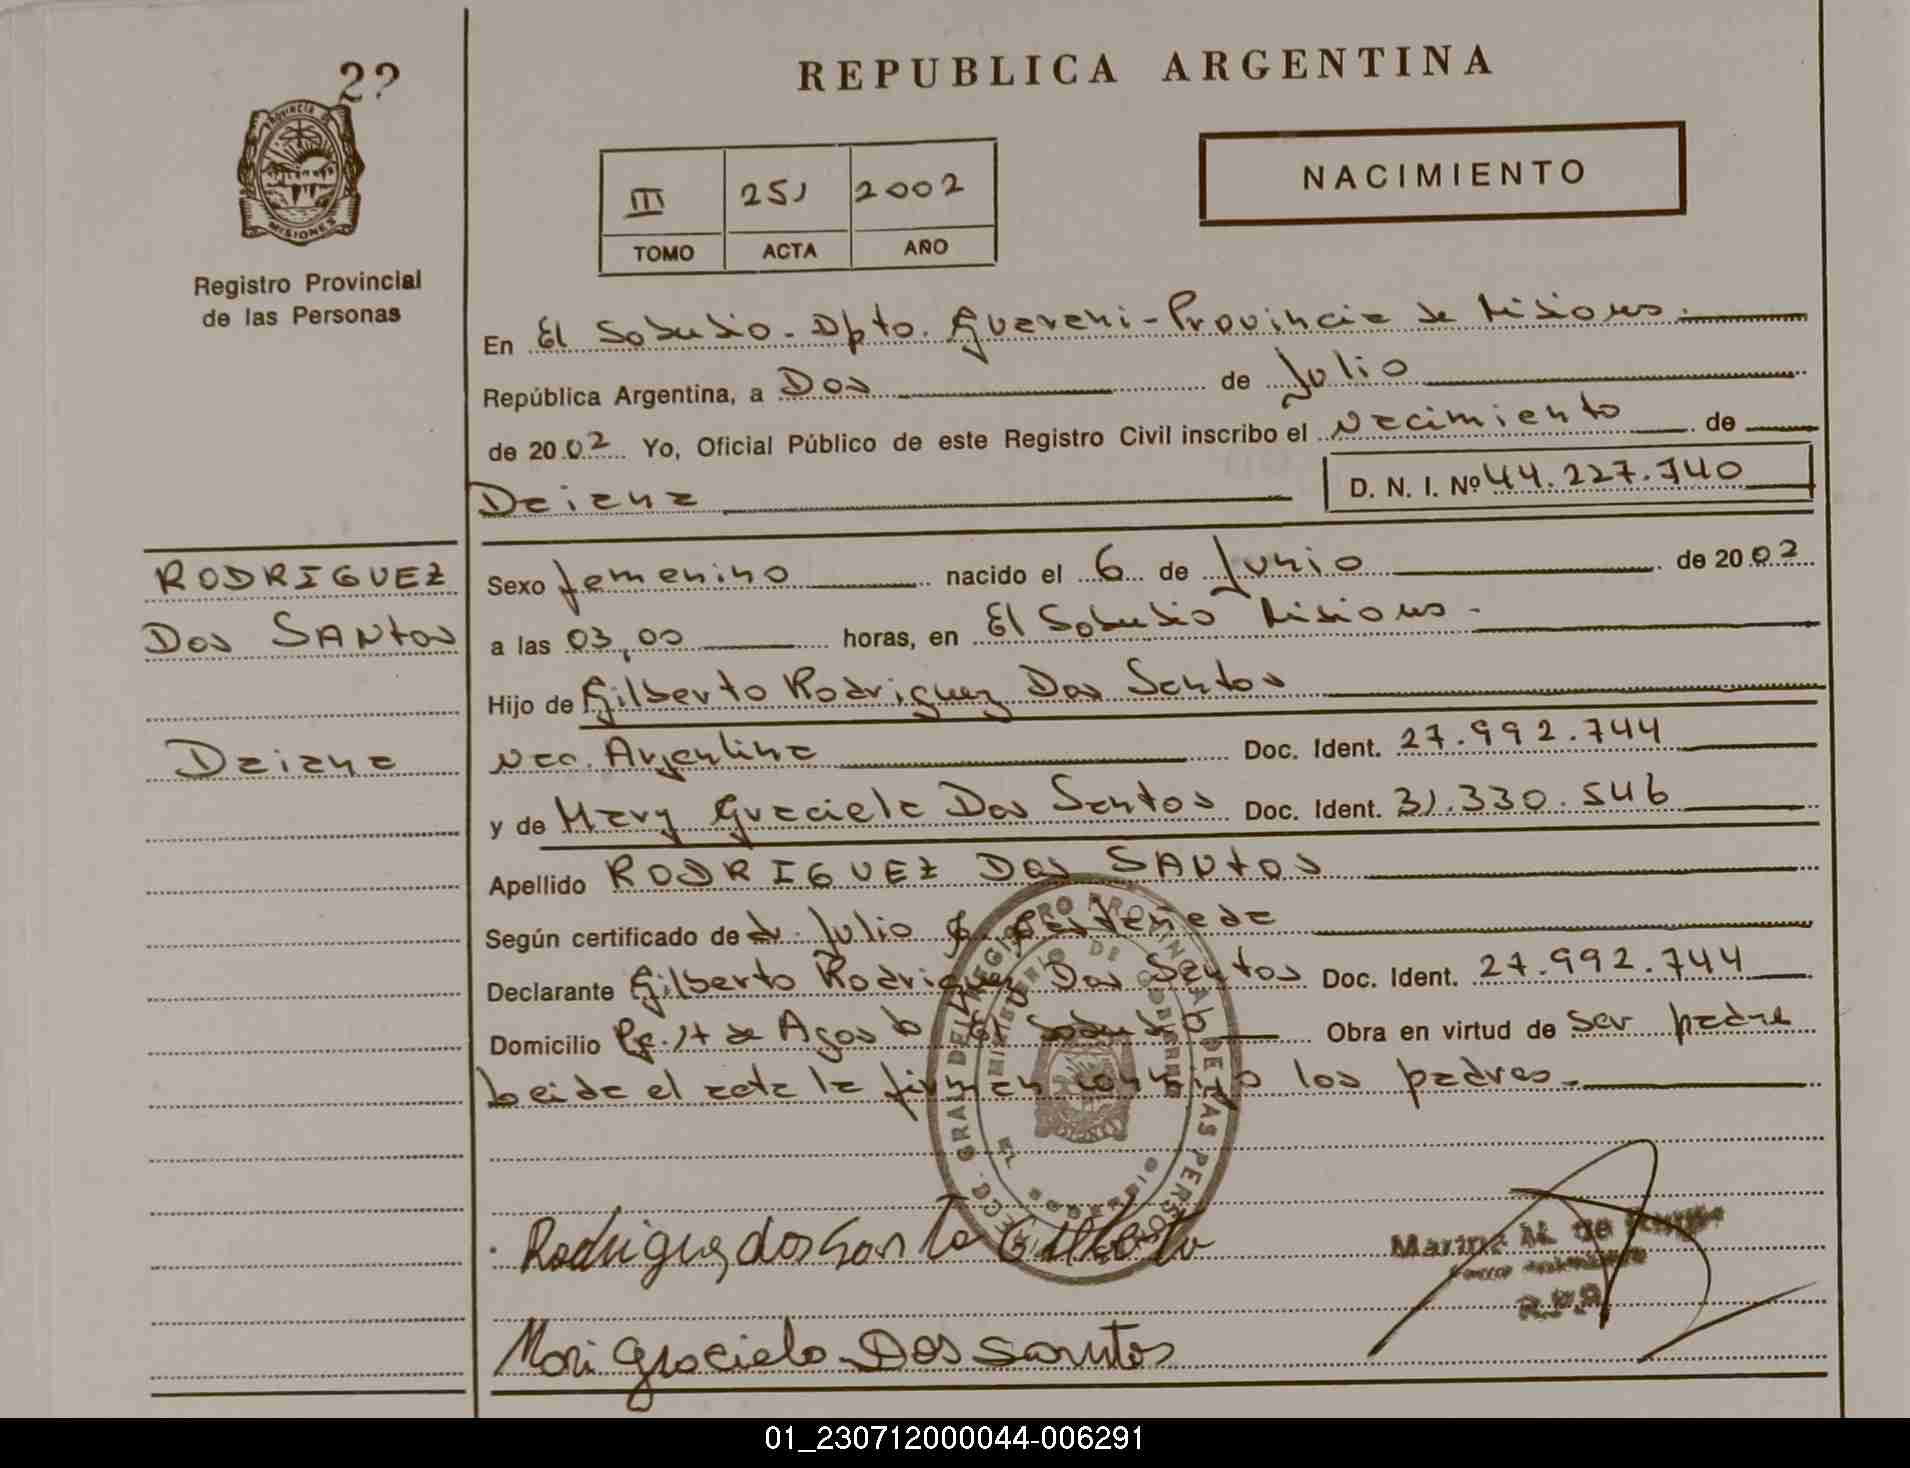 2?
PROVINCIA DE
MISIONES
Registro Provincial
de las Personas
REPUBLICA ARGENTINA
III 251 2002
TOMO ACTA AÑO
NACIMIENTO
En El Soberbio - Dpto. Guarani - Provincia de Misiones.
República Argentina, a Dos de Julio
de 2002 Yo, Oficial Público de este Registro Civil inscribo el Nacimiento de
Daiana D. N. I. Nº 44.227.740
RODRIGUEZ
Dos SANtos
Daiana
Sexo femenino nacido el 6 de Junio de 2002
a las 03,00 horas, en El Soberbio Misiones -
Hijo de Gilberto Rodriguez Dos Santos
Nac. Argentina Doc. Ident. 27.992.744
y de Mary Graciela Dos Santos Doc. Ident. 31.330.546
Apellido RODRIGUEZ Dos SANtos
Según certificado de dr. Julio Castañeda
Declarante Gilberto Rodriguez Dos Santos Doc. Ident. 27.992.744
Domicilio 17 de Agosto El Soberbio Obra en virtud de ser padre
Leida el acta la firman conmigo los padres.
Rodriguez dos Santo Gilberto
Mari Graciela Dos Santos
Marina M. de
R.P.P.
01_230712000044-006291